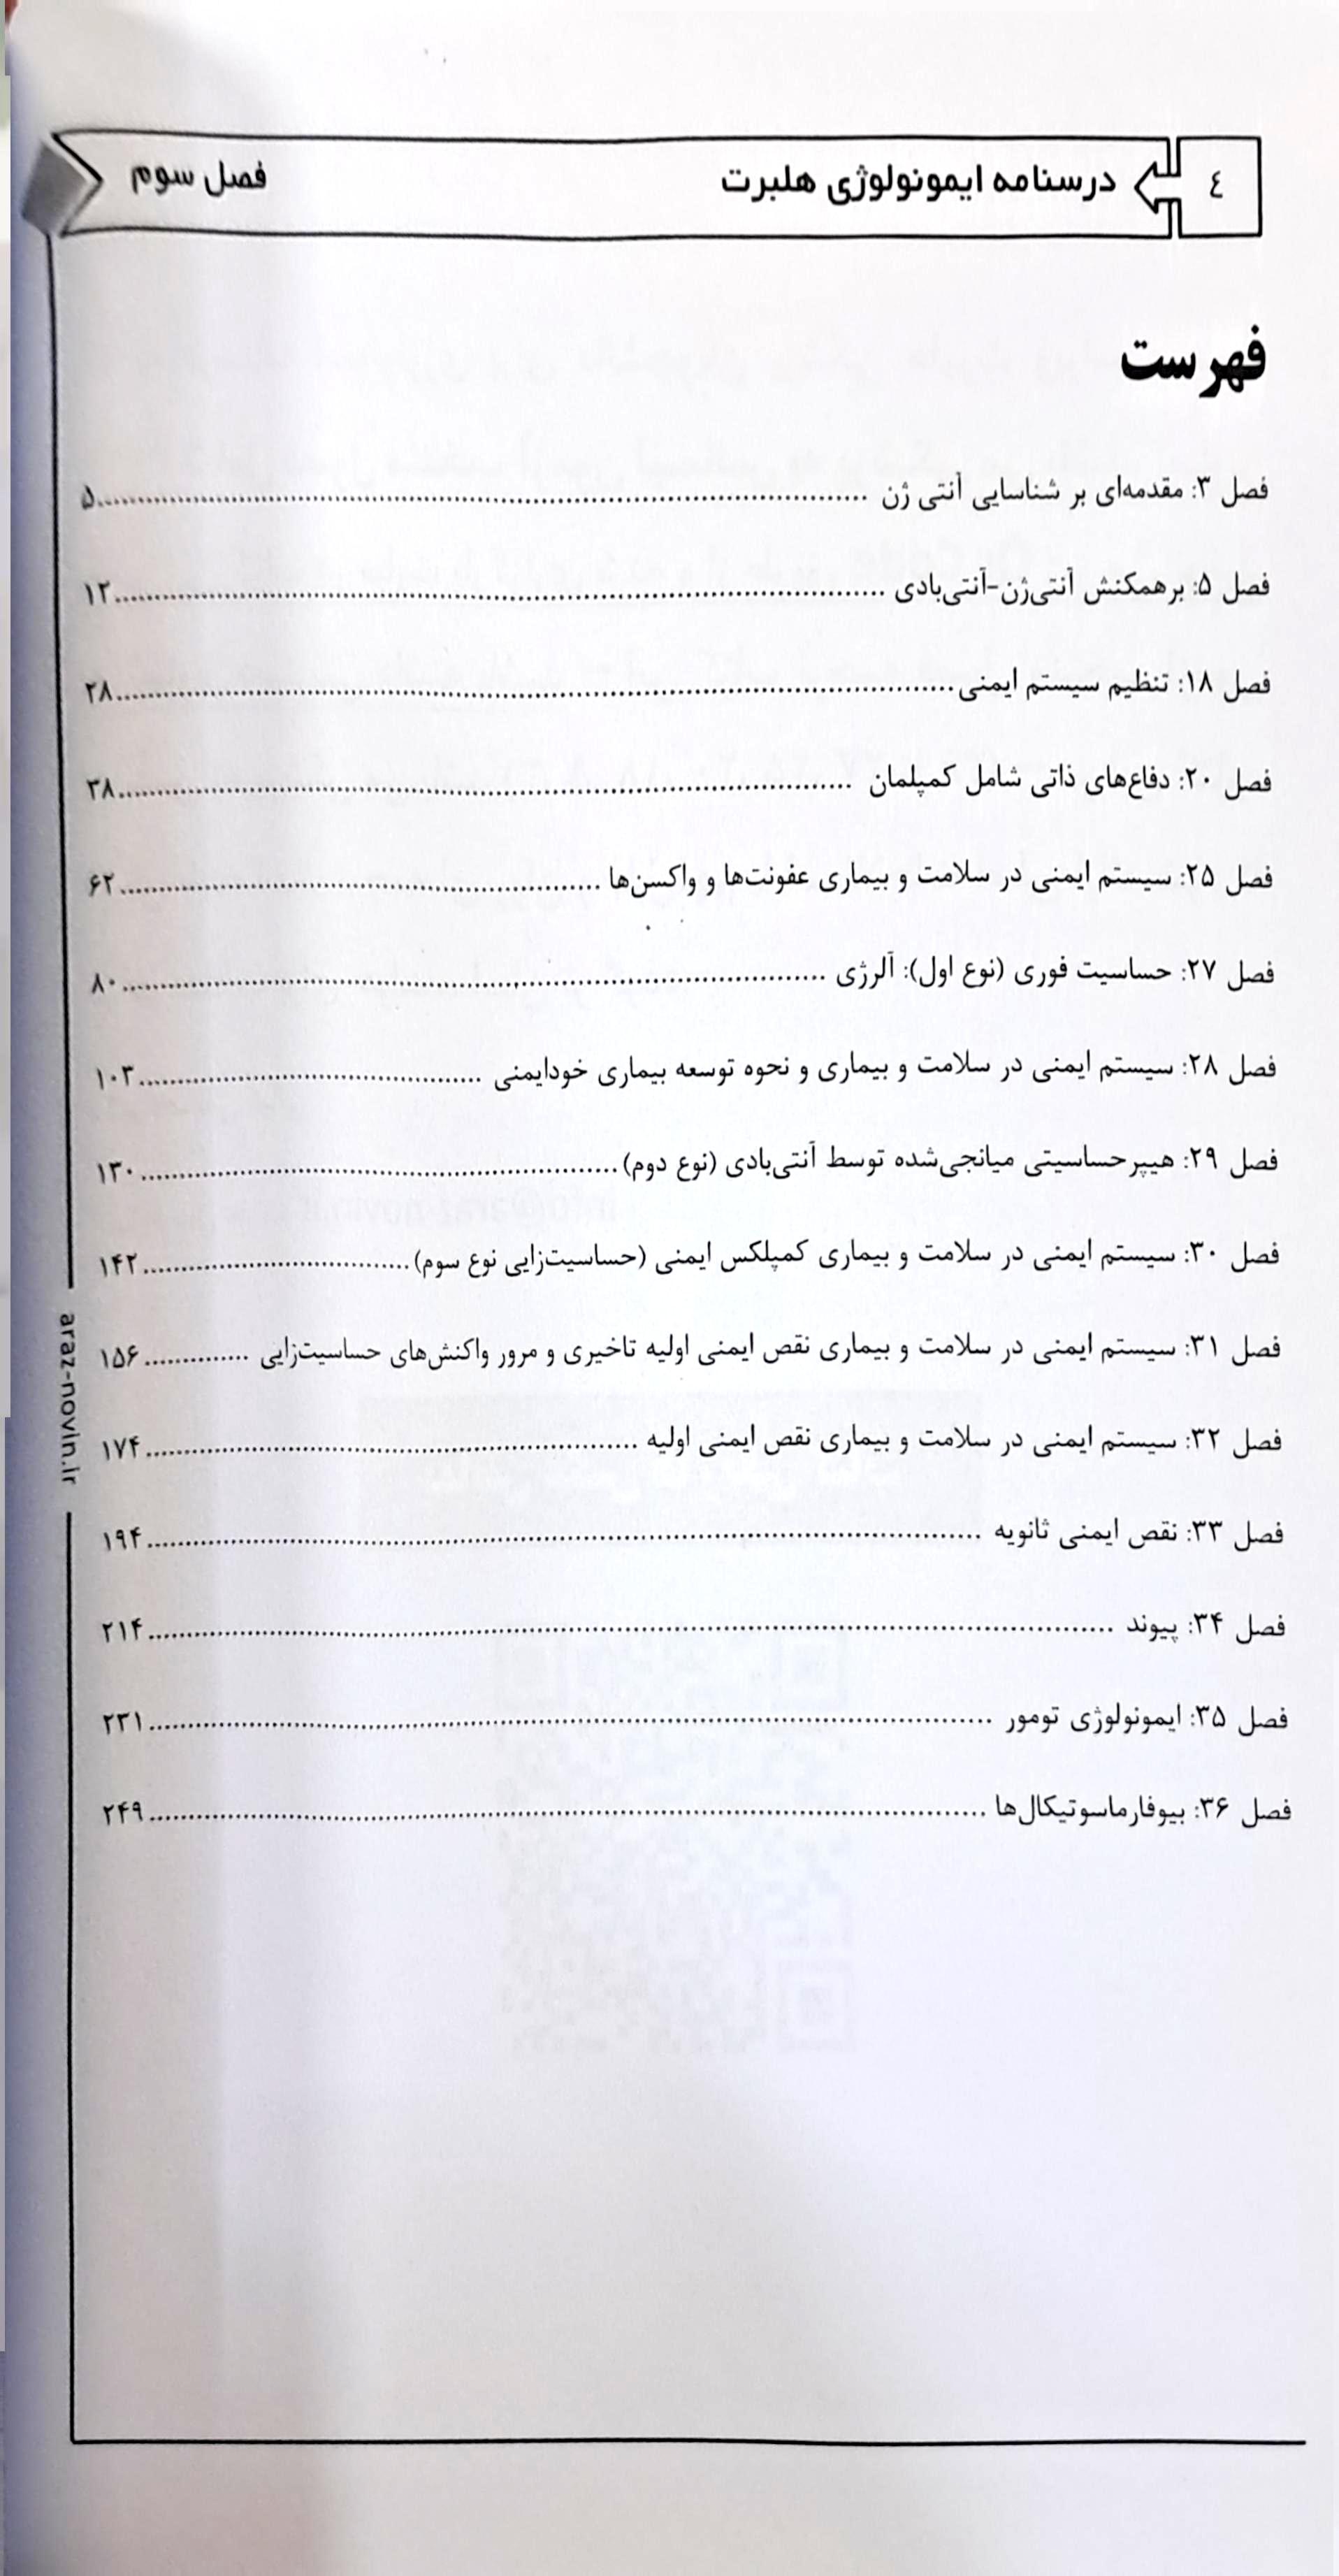 ٤
درسنامه ایمونولوژی هلبرت
فصل سوم
فهرست
فصل ۳: مقدمه‌ای بر شناسایی آنتی ژن ..... ۵
فصل ۵: برهمکنش آنتی‌ژن-آنتی‌بادی ..... ۱۲
فصل ۱۸: تنظیم سیستم ایمنی ..... ۲۸
فصل ۲۰: دفاع‌های ذاتی شامل کمپلمان ..... ۳۸
فصل ۲۵: سیستم ایمنی در سلامت و بیماری عفونت‌ها و واکسن‌ها ..... ۶۲
فصل ۲۷: حساسیت فوری (نوع اول): آلرژی ..... ۸۰
فصل ۲۸: سیستم ایمنی در سلامت و بیماری و نحوه توسعه بیماری خودایمنی ..... ۱۰۳
فصل ۲۹: هیپرحساسیتی میانجی‌شده توسط آنتی‌بادی (نوع دوم) ..... ۱۳۰
فصل ۳۰: سیستم ایمنی در سلامت و بیماری کمپلکس ایمنی (حساسیت‌زایی نوع سوم) ..... ۱۴۲
فصل ۳۱: سیستم ایمنی در سلامت و بیماری نقص ایمنی اولیه تاخیری و مرور واکنش‌های حساسیت‌زایی ..... ۱۵۶
فصل ۳۲: سیستم ایمنی در سلامت و بیماری نقص ایمنی اولیه ..... ۱۷۴
فصل ۳۳: نقص ایمنی ثانویه ..... ۱۹۴
فصل ۳۴: پیوند ..... ۲۱۴
فصل ۳۵: ایمونولوژی تومور ..... ۲۳۱
فصل ۳۶: بیوفارماسوتیکال‌ها ..... ۲۴۹
araz-novin.ir